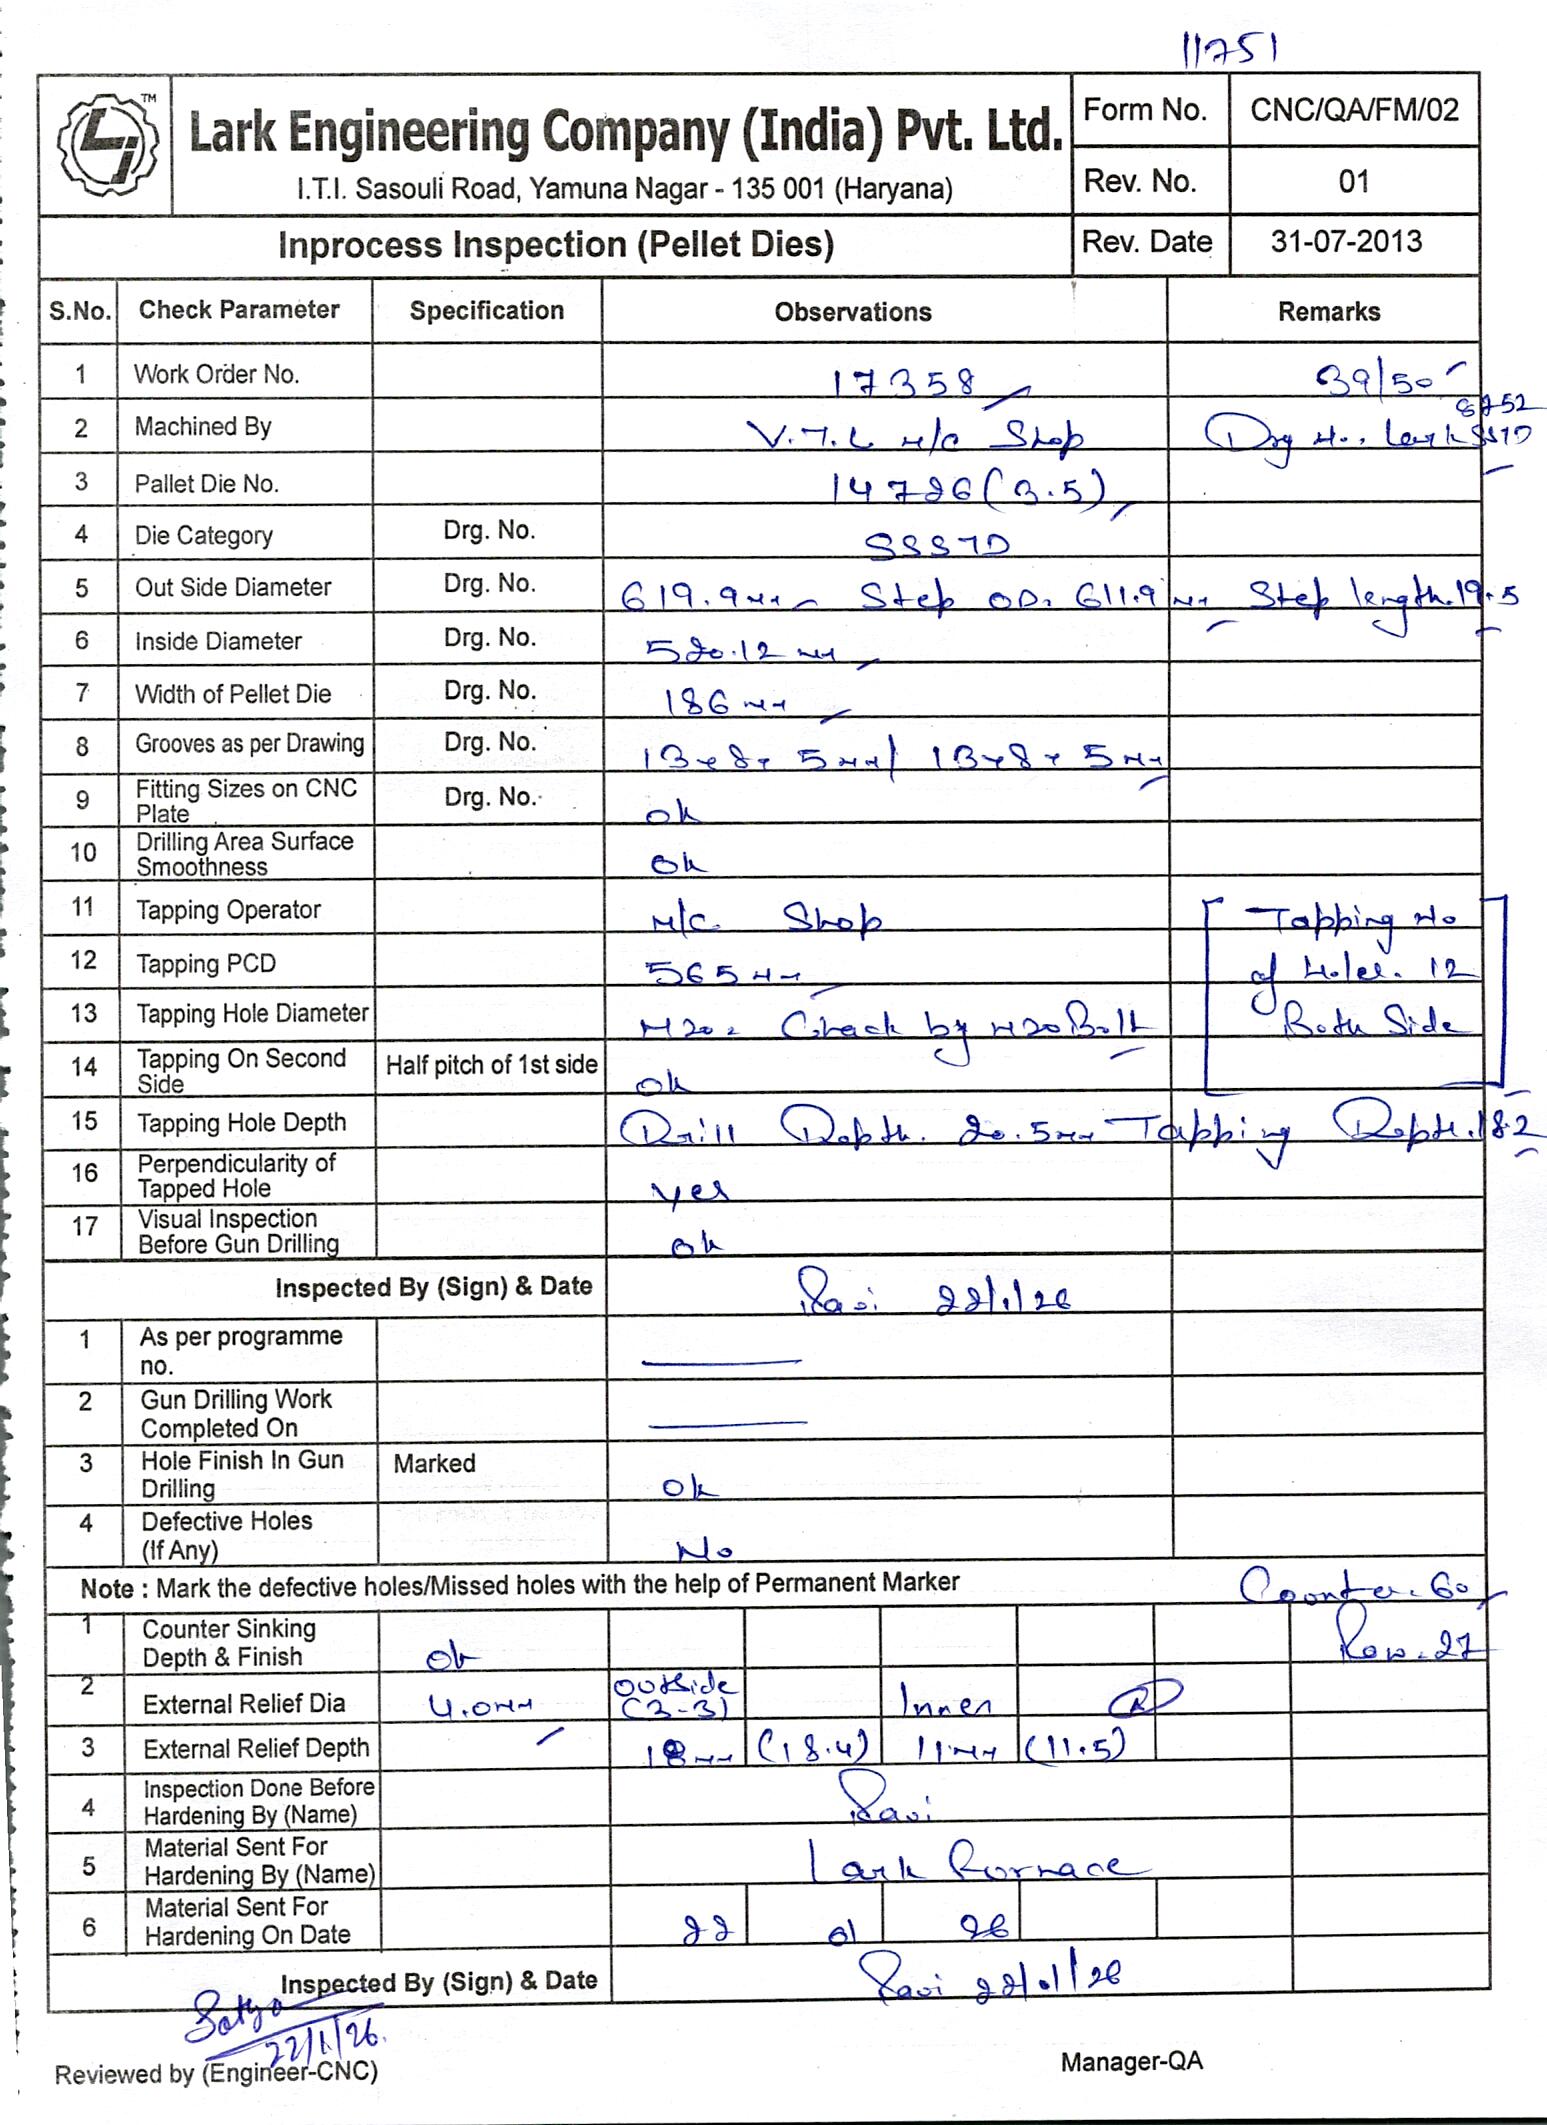 11751
Lark Engineering Company (India) Pvt. Ltd.
I.T.I. Sasouli Road, Yamuna Nagar - 135 001 (Haryana)
Form No. CNC/QA/FM/02
Rev. No. 01
Inprocess Inspection (Pellet Dies) Rev. Date 31-07-2013
S.No. Check Parameter Specification Observations Remarks
1 Work Order No. 17358 39/50
2 Machined By V.T.L M/C Shop Drg No. Lark SSTD 8752
3 Pallet Die No. 14726 (3.5)
4 Die Category Drg. No. SSSTD
5 Out Side Diameter Drg. No. 619.9mm Step OD. 611.9mm Step length. 19.5
6 Inside Diameter Drg. No. 520.12 mm
7 Width of Pellet Die Drg. No. 186 mm
8 Grooves as per Drawing Drg. No. 13x8x5mm/13x8x5mm
9 Fitting Sizes on CNC Plate Drg. No. ok
10 Drilling Area Surface Smoothness ok
11 Tapping Operator M/C Shop Tapping No
12 Tapping PCD 565mm of Holes. 12
13 Tapping Hole Diameter M20. Check by M20 Bolt Both Side
14 Tapping On Second Side Half pitch of 1st side ok
15 Tapping Hole Depth Drill Depth. 20.5mm Tapping Depth. 182
16 Perpendicularity of Tapped Hole yes
17 Visual Inspection Before Gun Drilling ok
Inspected By (Sign) & Date Ravi 22/1/26
1 As per programme no.
2 Gun Drilling Work Completed On
3 Hole Finish In Gun Drilling Marked ok
4 Defective Holes (If Any) No
Note : Mark the defective holes/Missed holes with the help of Permanent Marker Counter. 60
1 Counter Sinking Depth & Finish ok Row. 27
2 External Relief Dia 4.0mm Outside (3-3) Inner R
3 External Relief Depth 18mm (18.4) 11mm (11.5)
4 Inspection Done Before Hardening By (Name) Ravi
5 Material Sent For Hardening By (Name) Lark Furnace
6 Material Sent For Hardening On Date 22 01 26
Inspected By (Sign) & Date Ravi 22/01/26
Satya
22/1/26.
Reviewed by (Engineer-CNC) Manager-QA